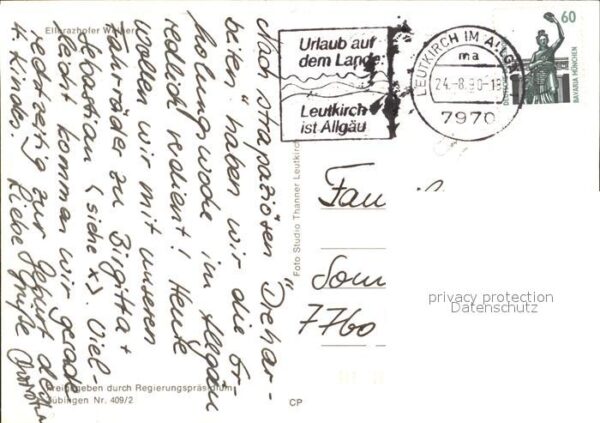 Ellerazhofer Weiher
Nach strapaziösen "Dreharbeiten"
haben wir die Er-
holungswoche im Allgäu
redlich verdient! Heute
wollen wir mit unseren
Fahrräder zu Birgitta +
Sebastian (siehe x). Viel-
leicht kommen wir gerade
rechtzeitig zur Geburt des
4. Kindes. Liebe Grüße
Freigegeben durch Regierungspräsidium
Tübingen Nr. 409/2
CP
Foto Studio Thanner Leutkirch
Urlaub auf
dem Lande
Leutkirch
ist Allgäu
LEUTKIRCH IM ALLGÄU
ma
24.-8.90-18
7970
60
DEUTSCHE
BAVARIA MÜNCHEN
Fam
7760
privacy protection
Datenschutz